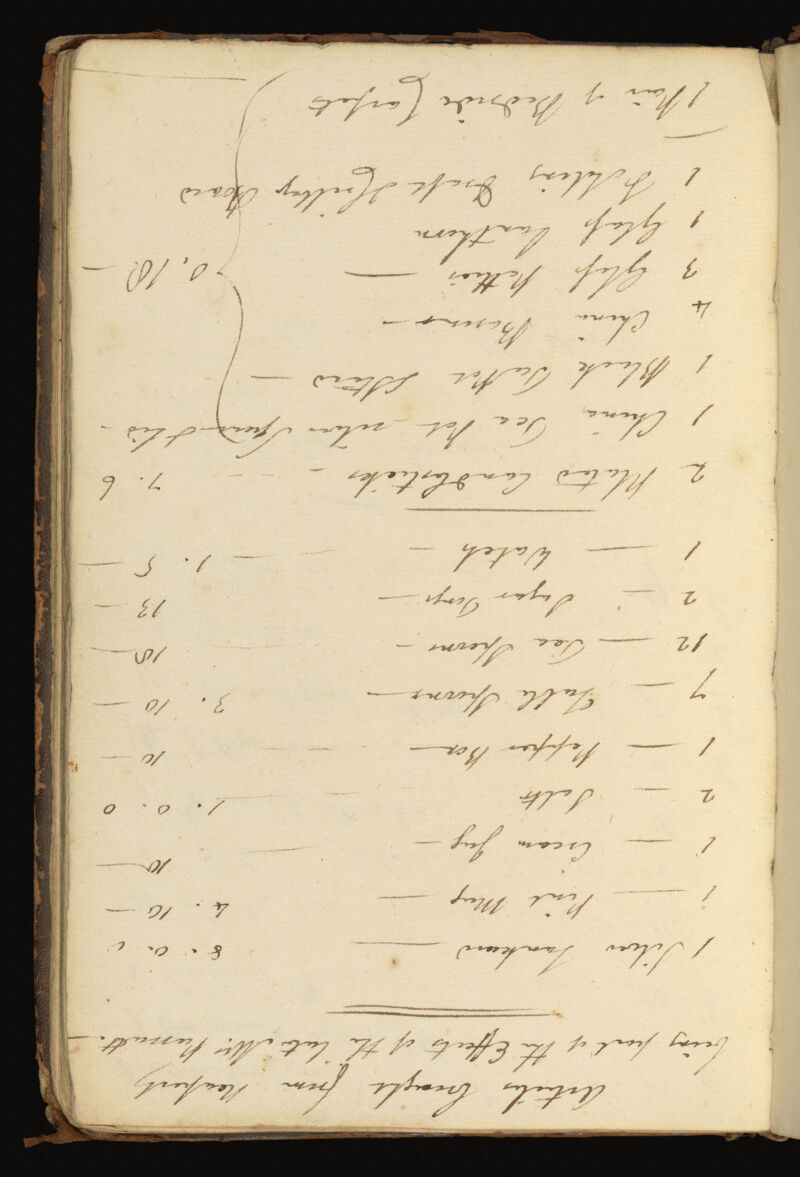 Articles brought from
being part of the Effects of the late Mr.
1 Silver Tankard — 8. 0. 0
1 — Pint Mug — 4. 10 —
1 — Cream Jug — 10 —
2 — Salts 1. 0. 0
1 — Pepper Box — 10 —
7 — Table Spoons — 3. 10 —
12 — Tea Spoons — 18 —
2 — Sugar Tongs — 13 —
1 — Watch — 1. 5 —
2 Plated Candlesticks — 7. 6
1 China Tea Pot silver Spout & Lid —
1 Black Tea Pot —
4 China Basons —
3 Glass — 0. 18. —
1 Glass Lanthorn
1 Folding Board
1 Pair of Bedside Carpets